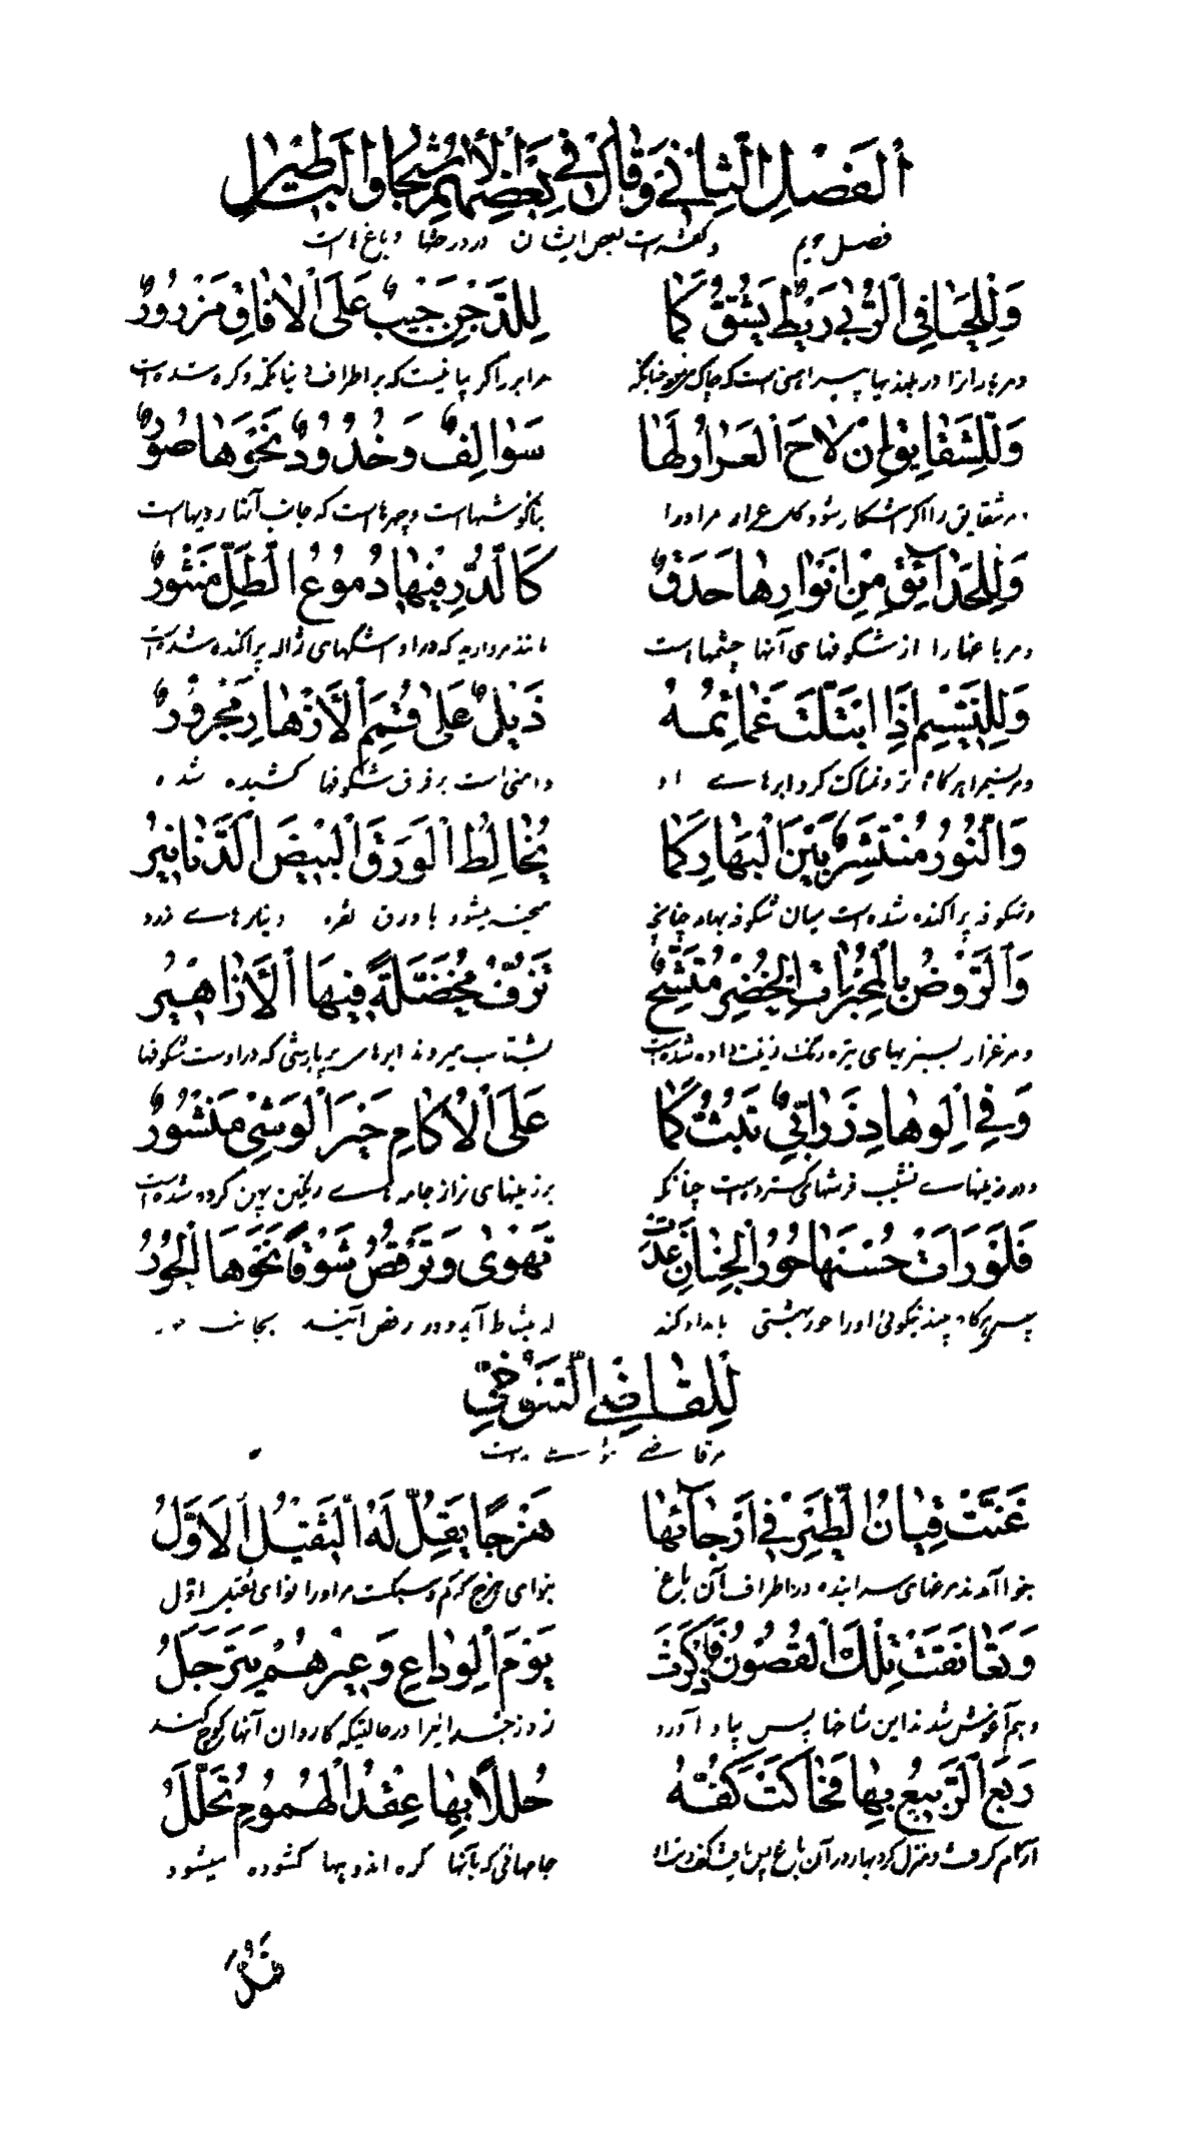 الفصل الثاني وقال في بعضهم الأشجار والبساتين
فصل دوم وگفته است بعض ایشان در درختها و باغ است
وَلِلْحَيَا فِي الرُّبى رَيْطٌ يَشُقُّ كَمَا لِلدَّجْنِ جَيْبٌ عَلَى الْآفَاقِ مَزْرُورٌ
ومر باران را در بلندیها پیراهنی است که چاک میشود چنانکه مر ابر را گریبانیست که بر اطراف دنیا تکمه و گره شده است
وَلِلشَّقَايِقِ إِنْ لَاحَ الْعَرَارُ لَهَا سَوَالِفٌ وَخُدُودٌ نَحْوَهَا صُورٌ
مر شقایق را اگر آشکار شود گل عرار مر او را بناگوشهاست و چهرهاست که جانب آنها رویهاست
وَلِلْحَدَآئِقِ مِنْ اَنْوَارِهَا حَدَقٌ كَالدُّرِّ فِيهَا دُمُوعُ الطَّلِّ مَنْثُورٌ
ومر باغها را از شکوفهای آنها چشمها است مانند مروارید که در او اشکهای ژاله پراکنده شده است
وَلِلنَّسِيمِ اِذَا ابْتَلَّتْ غَمَائِمُهُ ذَيْلٌ عَلَى قِمَمِ الْأَزْهَارِ مَجْرُورٌ
ومر نسیم را هرگاه تر و نمناک گردد ابرهای او دامنی است بر فرق شکوفها کشیده شده
وَالنَّوْرُ مُنْتَشِرٌ بَيْنَ الْبَهَارِ كَمَا يُخَالِطُ الْوَرِقَ الْبِيضَ الدَّنَانِيرُ
وشکوفه پراکنده شده است میان شکوفه بهار چنانچه آمیخته میشود با ورق نقره دینارهای زرد
وَالرَّوْضُ بِالْحِبَرَاتِ الْخُضْرِ مُتَّشِحٌ تَرِفُّ مُخْضَلَّةً فِيهَا الْأَزَاهِيرُ
ومرغزار بسبزیهای تیره رنگ زینت داده شده است بشتاب میروند ابرهای پر بارشی که در اوست شکوفها
وَفِي الْوِهَادِ زَرَابِيٌّ تُبَثُّ كَمَا عَلَى الْاكَامِ حَبَرُ الْوَشْيِ مَنْشُورٌ
ودر زمینهای نشیب فرشهای گسترده است چنانکه بر زمینهای فراز جامه های رنگین پهن کرده شده است
فَلَوْ رَاَتْ حُسْنَهَا حُورُ الْجِنَانِ غَدَتْ تَهْوِى وَتَرْقُصُ شَوْقًا نَحْوَهَا الْحُورُ
پس هرگاه بیند نیکوئی او را حور بهشتی بامداد کند بنشاط آید و در رقص آیند بجانب
لِلْقَاضِي التَّنُوخِيّ
مر قاضی است
غَنَّتْ قِيَانُ الطَّيْرِ فِي اَرْجَآئِهَا هَزَجًا يَقِلُّ لَهُ الثَّقِيلُ الْاَوَّلُ
بنوا آمدند مرغهای سراینده در اطراف آن باغ بنوای هزج کم و سبکست مر او را نوای ثقیل اول
وَتَعَانَقَتْ تِلْكَ الْغُصُونُ فَاذَّكَرَتْ يَوْمَ الْوِدَاعِ وَعِيرُهُمْ تَتَرَحَّلُ
وهم آغوش شدند این شاخها پس یاد آورد روز جدائی را در حالتیکه کاروان آنها کوچ کنند
رَبَعَ الرَّبِيعُ بِهَا فَحَاكَتْ كَفُّهُ حُلَلًا بِهَا عِقْدُ الْهُمُومِ تُحَلَّلُ
آرام گرفت و منزل کرد بهار در آن باغ پس بافت کف دست او جامهائی که بآنها گره اندوهها گشوده میشود